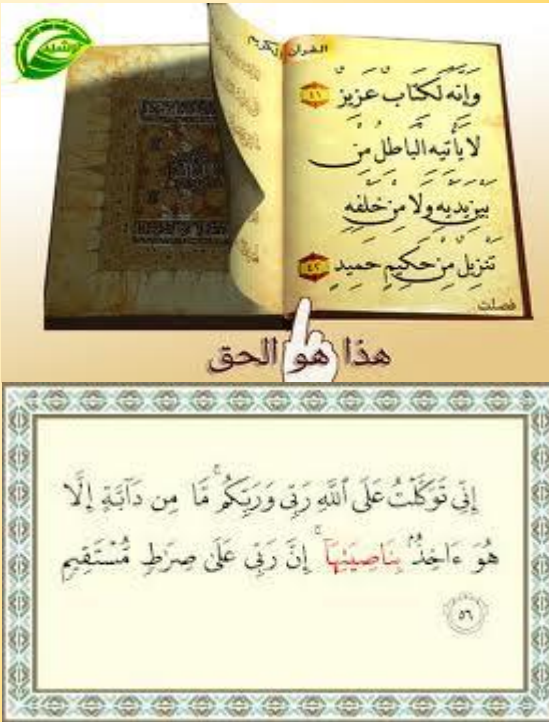 القرآن الكريم
وَإِنَّهُ لَكِتَابٌ عَزِيزٌ ٤١
لَا يَأْتِيهِ الْبَاطِلُ مِنْ
بَيْنِ يَدَيْهِ وَلَا مِنْ خَلْفِهِ
تَنْزِيلٌ مِنْ حَكِيمٍ حَمِيدٍ ٤٢
فصلت
هذا هو الحق
إِنِّى تَوَكَّلْتُ عَلَى ٱللَّهِ رَبِّى وَرَبِّكُم ۚ مَّا مِن دَآبَّةٍ إِلَّا
هُوَ ءَاخِذٌۢ بِنَاصِيَتِهَآ ۚ إِنَّ رَبِّى عَلَىٰ صِرَٰطٍ مُّسْتَقِيمٍ
٥٦